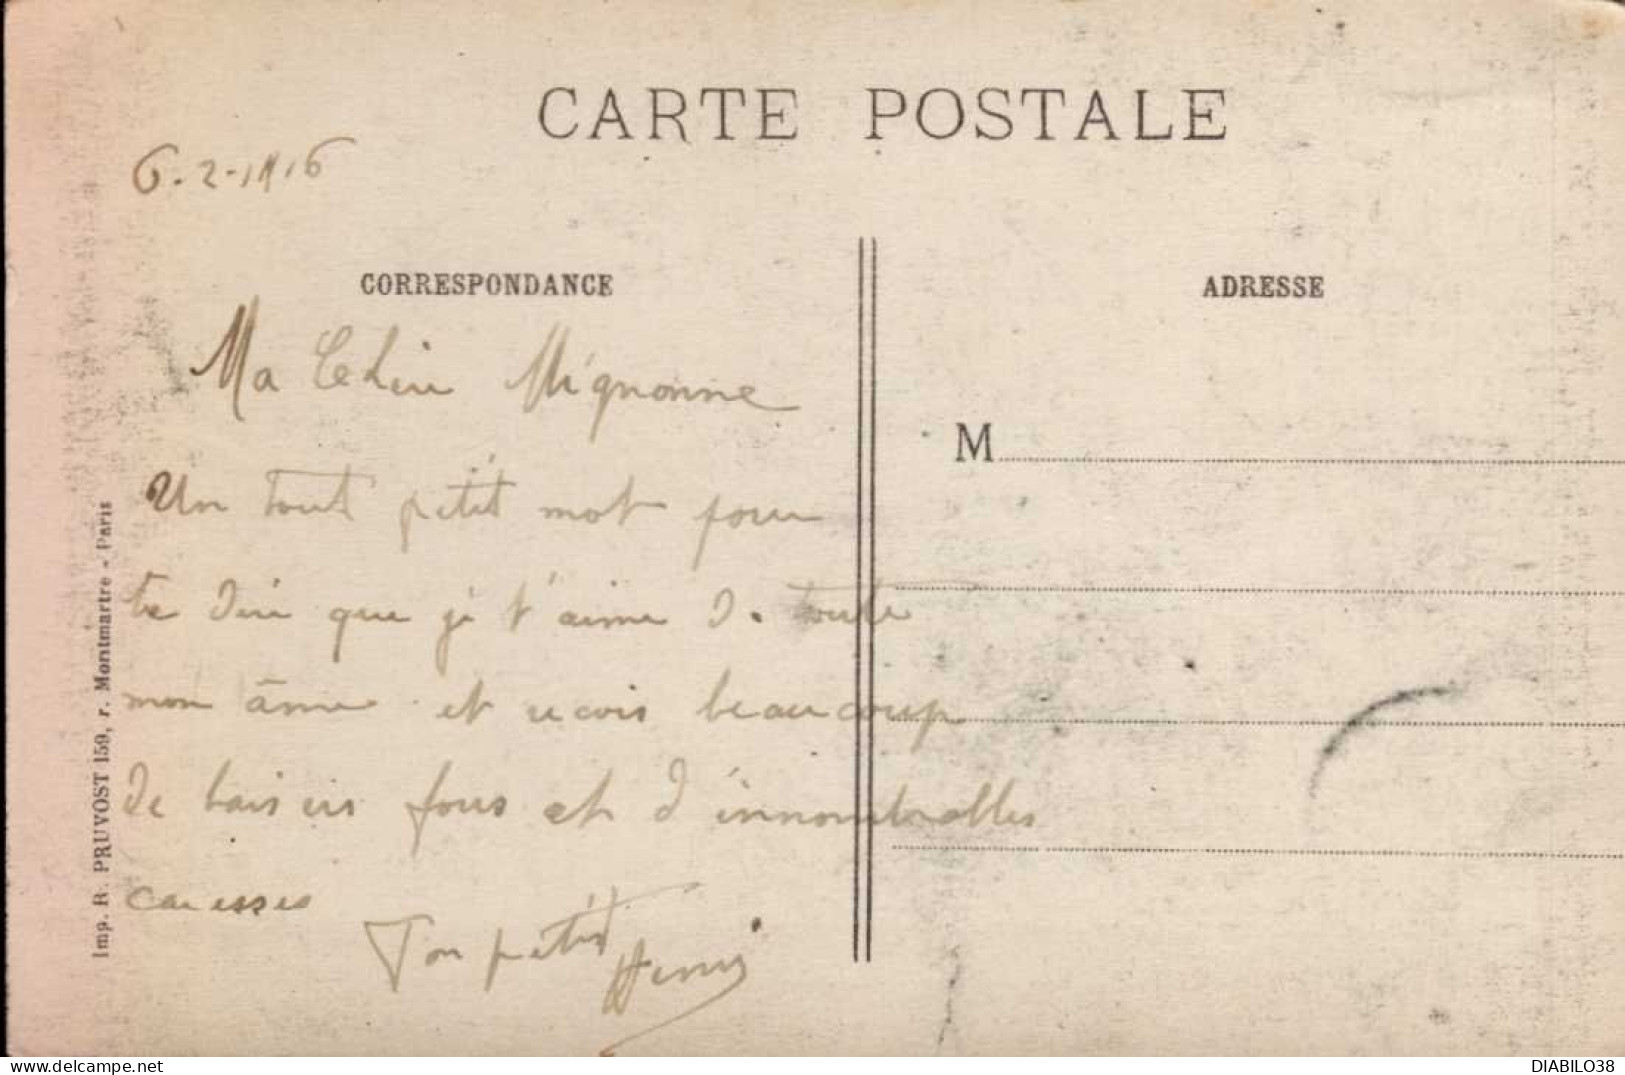 CARTE POSTALE
6.2-1916
CORRESPONDANCE
ADRESSE
Ma Mignonne
M
Un tout petit mot pour
te dire que je t'aime de toute
mon âme et reçois beaucoup
de baisers fous et d'innombrables
caresses
Ton petit Henri
Imp. R. PRUVOST 159, r. Montmartre - Paris
https://www.delcampe.net
DIABILO38